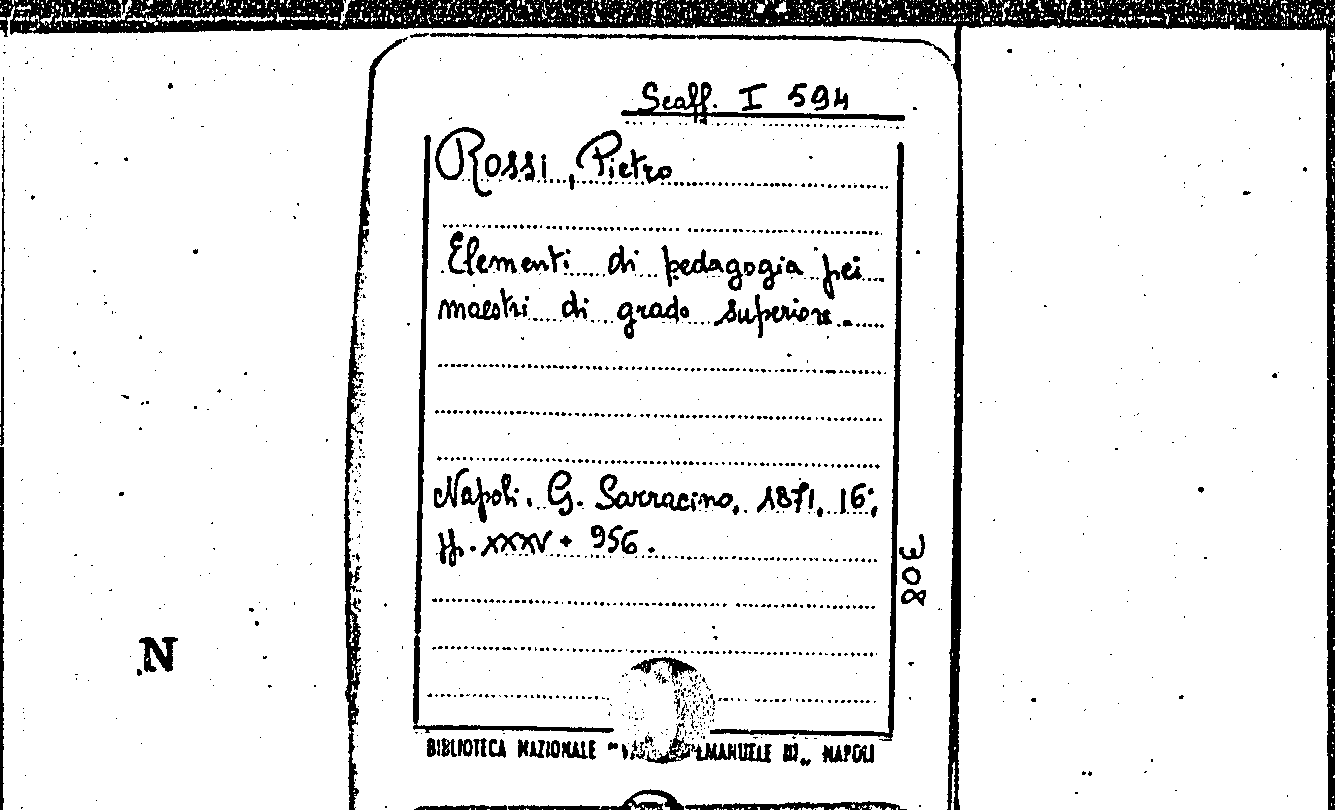 Scaff. I 594
Rossi, Pietro
Elementi di pedagogia pei
maestri di grado superiore.
Napoli. G. Sarracino, 1871, 16°,
pp. XXXV + 956.
308
N
BIBLIOTECA NAZIONALE " EMANUELE III„ NAPOLI